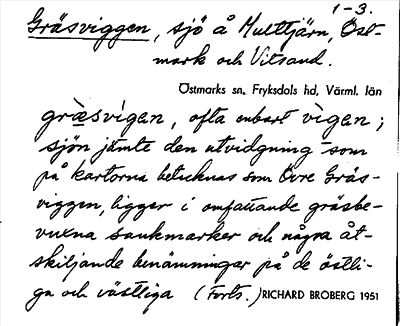 1-3.
Gräsviggen, sjö å Multtjärn, Öst-
mark och Vitsand.
Östmarks sn, Fryksdals hd, Värml. län
grä̀svigen, ofta enbart vìgen;
sjön jämte den utvidgning som
på kartorna betecknas som Övre Gräs-
viggen, ligger i omfattande gräsbe-
vuxna sankmarker och några åt-
skiljande benämningar på de östli-
ga och västliga (Forts.) RICHARD BROBERG 1951